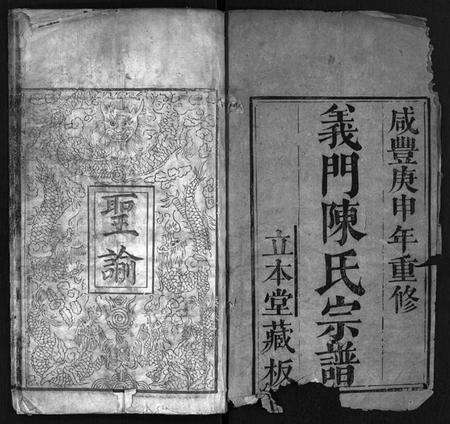 咸豐庚申年重修
義門陳氏宗譜
立本堂藏板
聖諭